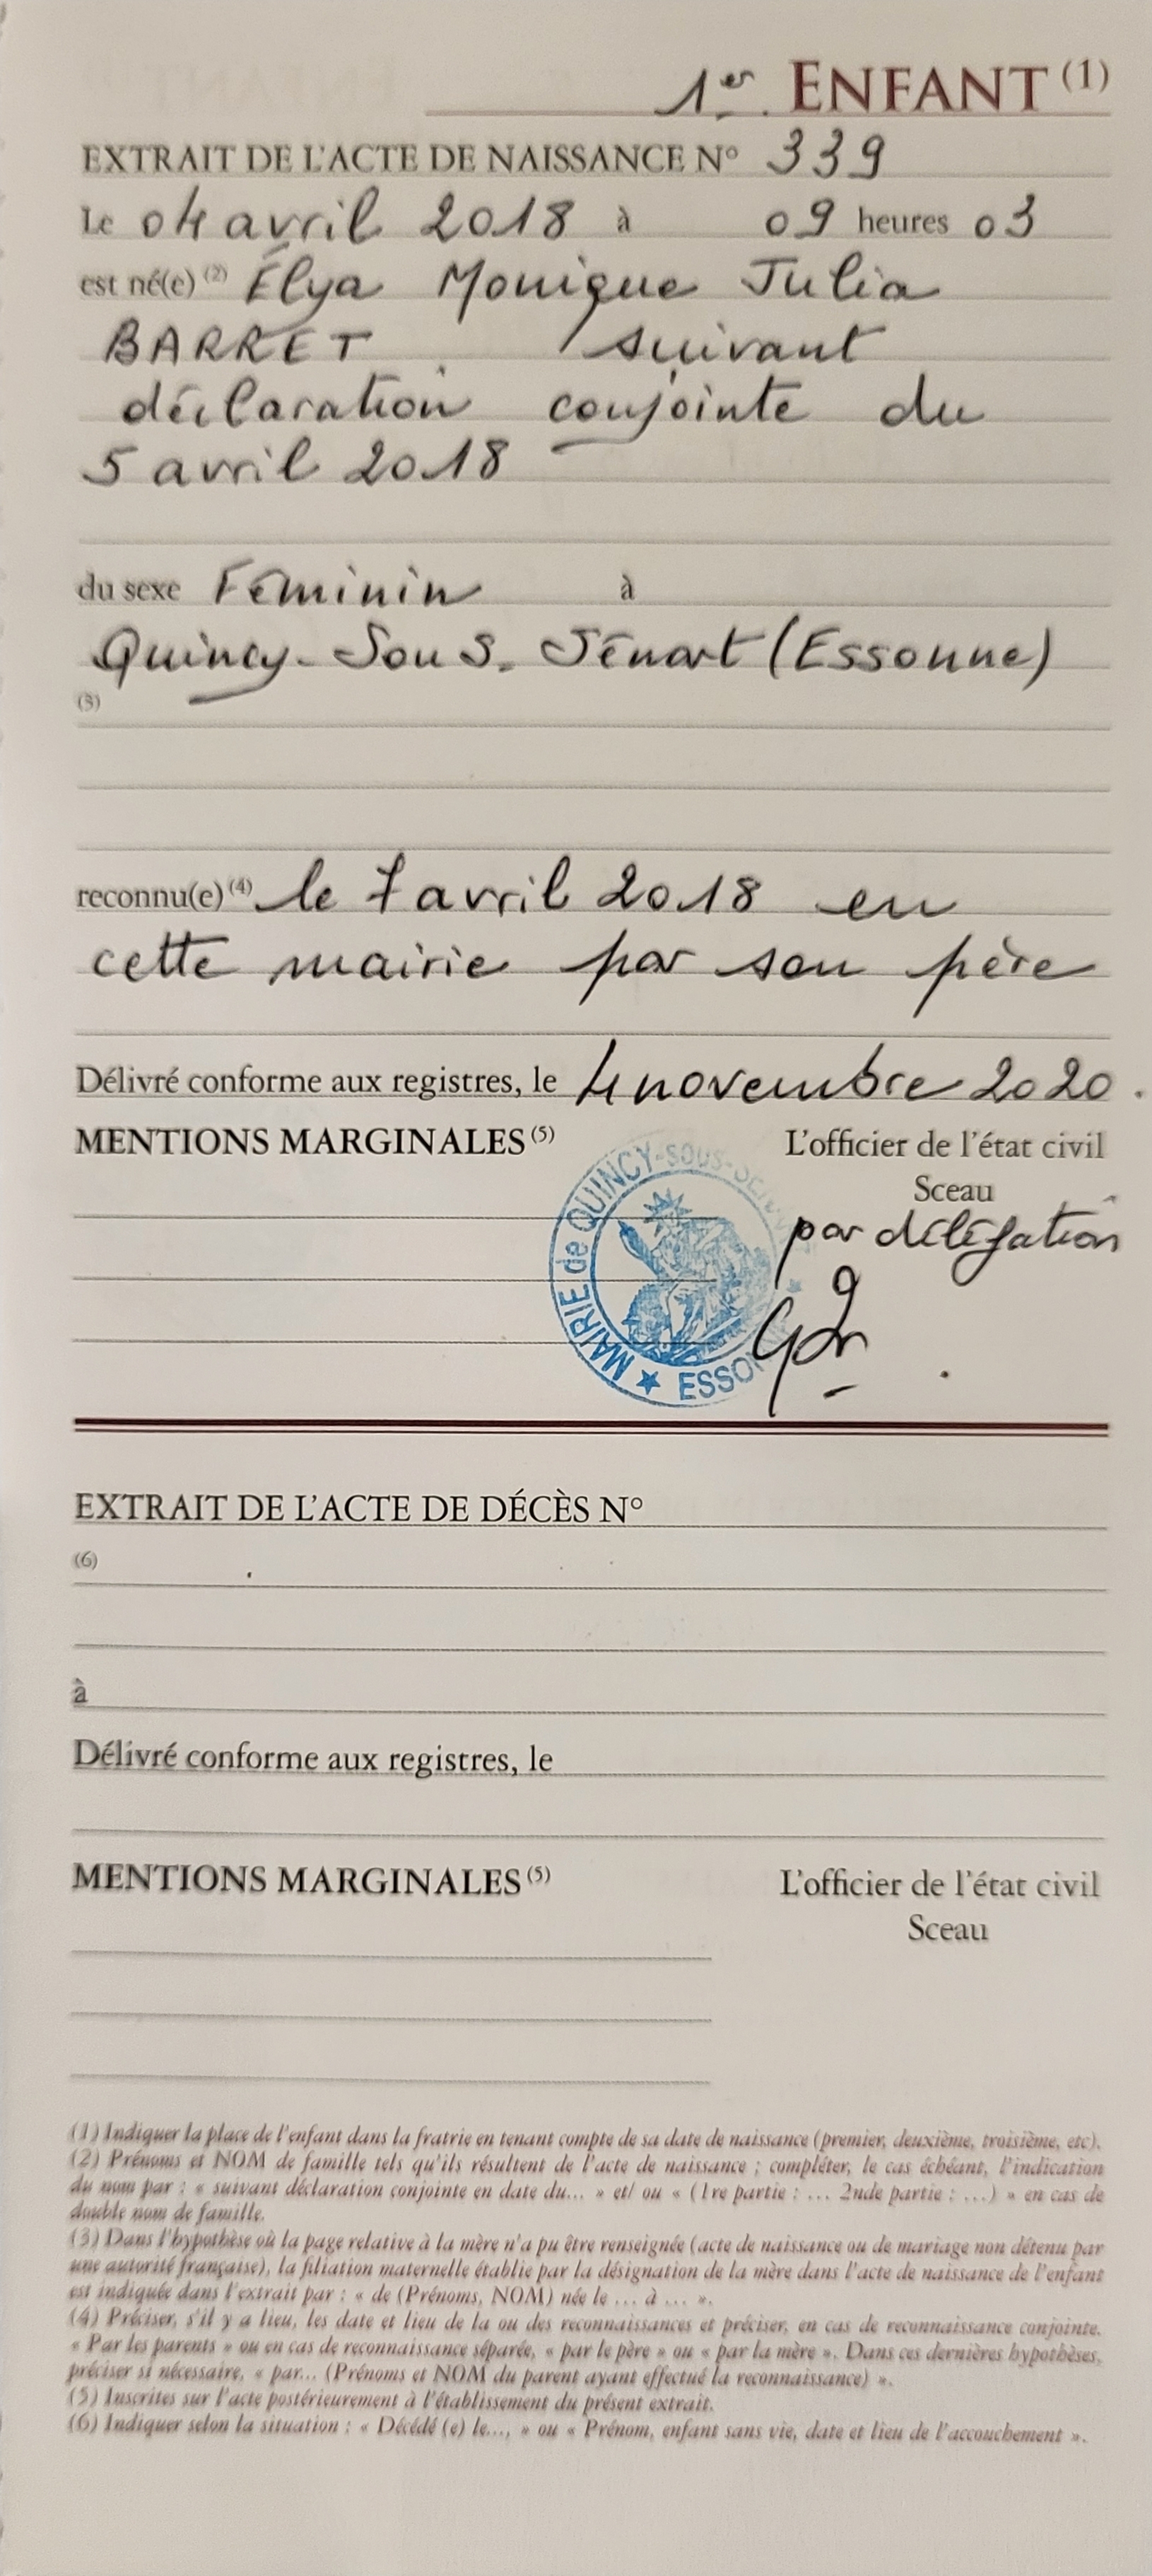 1er ENFANT (1)
EXTRAIT DE L'ACTE DE NAISSANCE N° 339
Le 04 avril 2018 à 09 heures 03
est né(e) (2) Élya Monique Julia
BARRET suivant
déclaration conjointe du
5 avril 2018
du sexe Féminin à
Quincy-Sous-Sénart (Essonne)
(3)
reconnu(e) (4) le 7 avril 2018 en
cette mairie par son père
Délivré conforme aux registres, le 4 novembre 2020.
MENTIONS MARGINALES (5) L'officier de l'état civil
Sceau
par délégation
MAIRIE de QUINCY-SOUS-SÉNART
★ ESSONNE ★
EXTRAIT DE L'ACTE DE DÉCÈS N°
(6)
à
Délivré conforme aux registres, le
MENTIONS MARGINALES (5) L'officier de l'état civil
Sceau
(1) Indiquer la place de l'enfant dans la fratrie en tenant compte de sa date de naissance (premier, deuxième, troisième, etc).
(2) Prénoms et NOM de famille tels qu'ils résultent de l'acte de naissance ; compléter, le cas échéant, l'indication
du nom par : « suivant déclaration conjointe en date du... » et/ ou « (1re partie : ... 2nde partie : ...) » en cas de
double nom de famille.
(3) Dans l'hypothèse où la page relative à la mère n'a pu être renseignée (acte de naissance ou de mariage non détenu par
une autorité française), la filiation maternelle établie par la désignation de la mère dans l'acte de naissance de l'enfant
est indiquée dans l'extrait par : « de (Prénoms, NOM) née le ... à ... ».
(4) Préciser, s'il y a lieu, les date et lieu de la ou des reconnaissances et préciser, en cas de reconnaissance conjointe.
« Par les parents » ou en cas de reconnaissance séparée, « par le père » ou « par la mère ». Dans ces dernières hypothèses,
préciser si nécessaire, « par... (Prénoms et NOM du parent ayant effectué la reconnaissance) ».
(5) Inscrites sur l'acte postérieurement à l'établissement du présent extrait.
(6) Indiquer selon la situation : « Décédé (e) le..., » ou « Prénom, enfant sans vie, date et lieu de l'accouchement ».